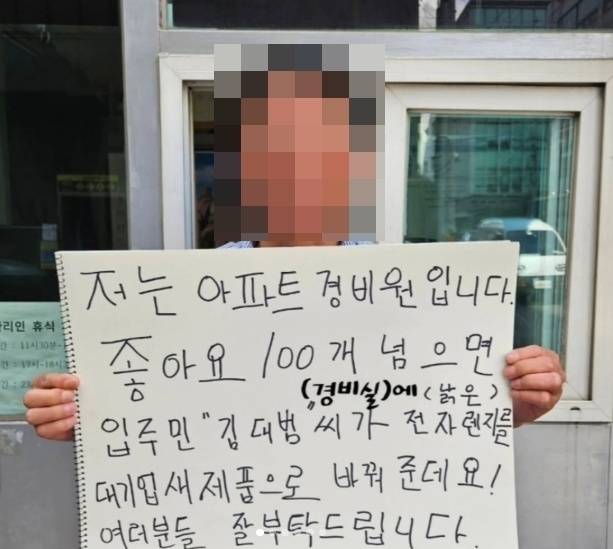 저는 아파트 경비원입니다.
좋아요 100개 넘으면
(경비실)에 (낡은)
입주민 "김대범"씨가 전자렌지를
대기업새제품으로 바꿔 준데요!
여러분들 잘부탁드립니다.
관리인 휴식
간 : 11시30분~
간 : 17시~18시